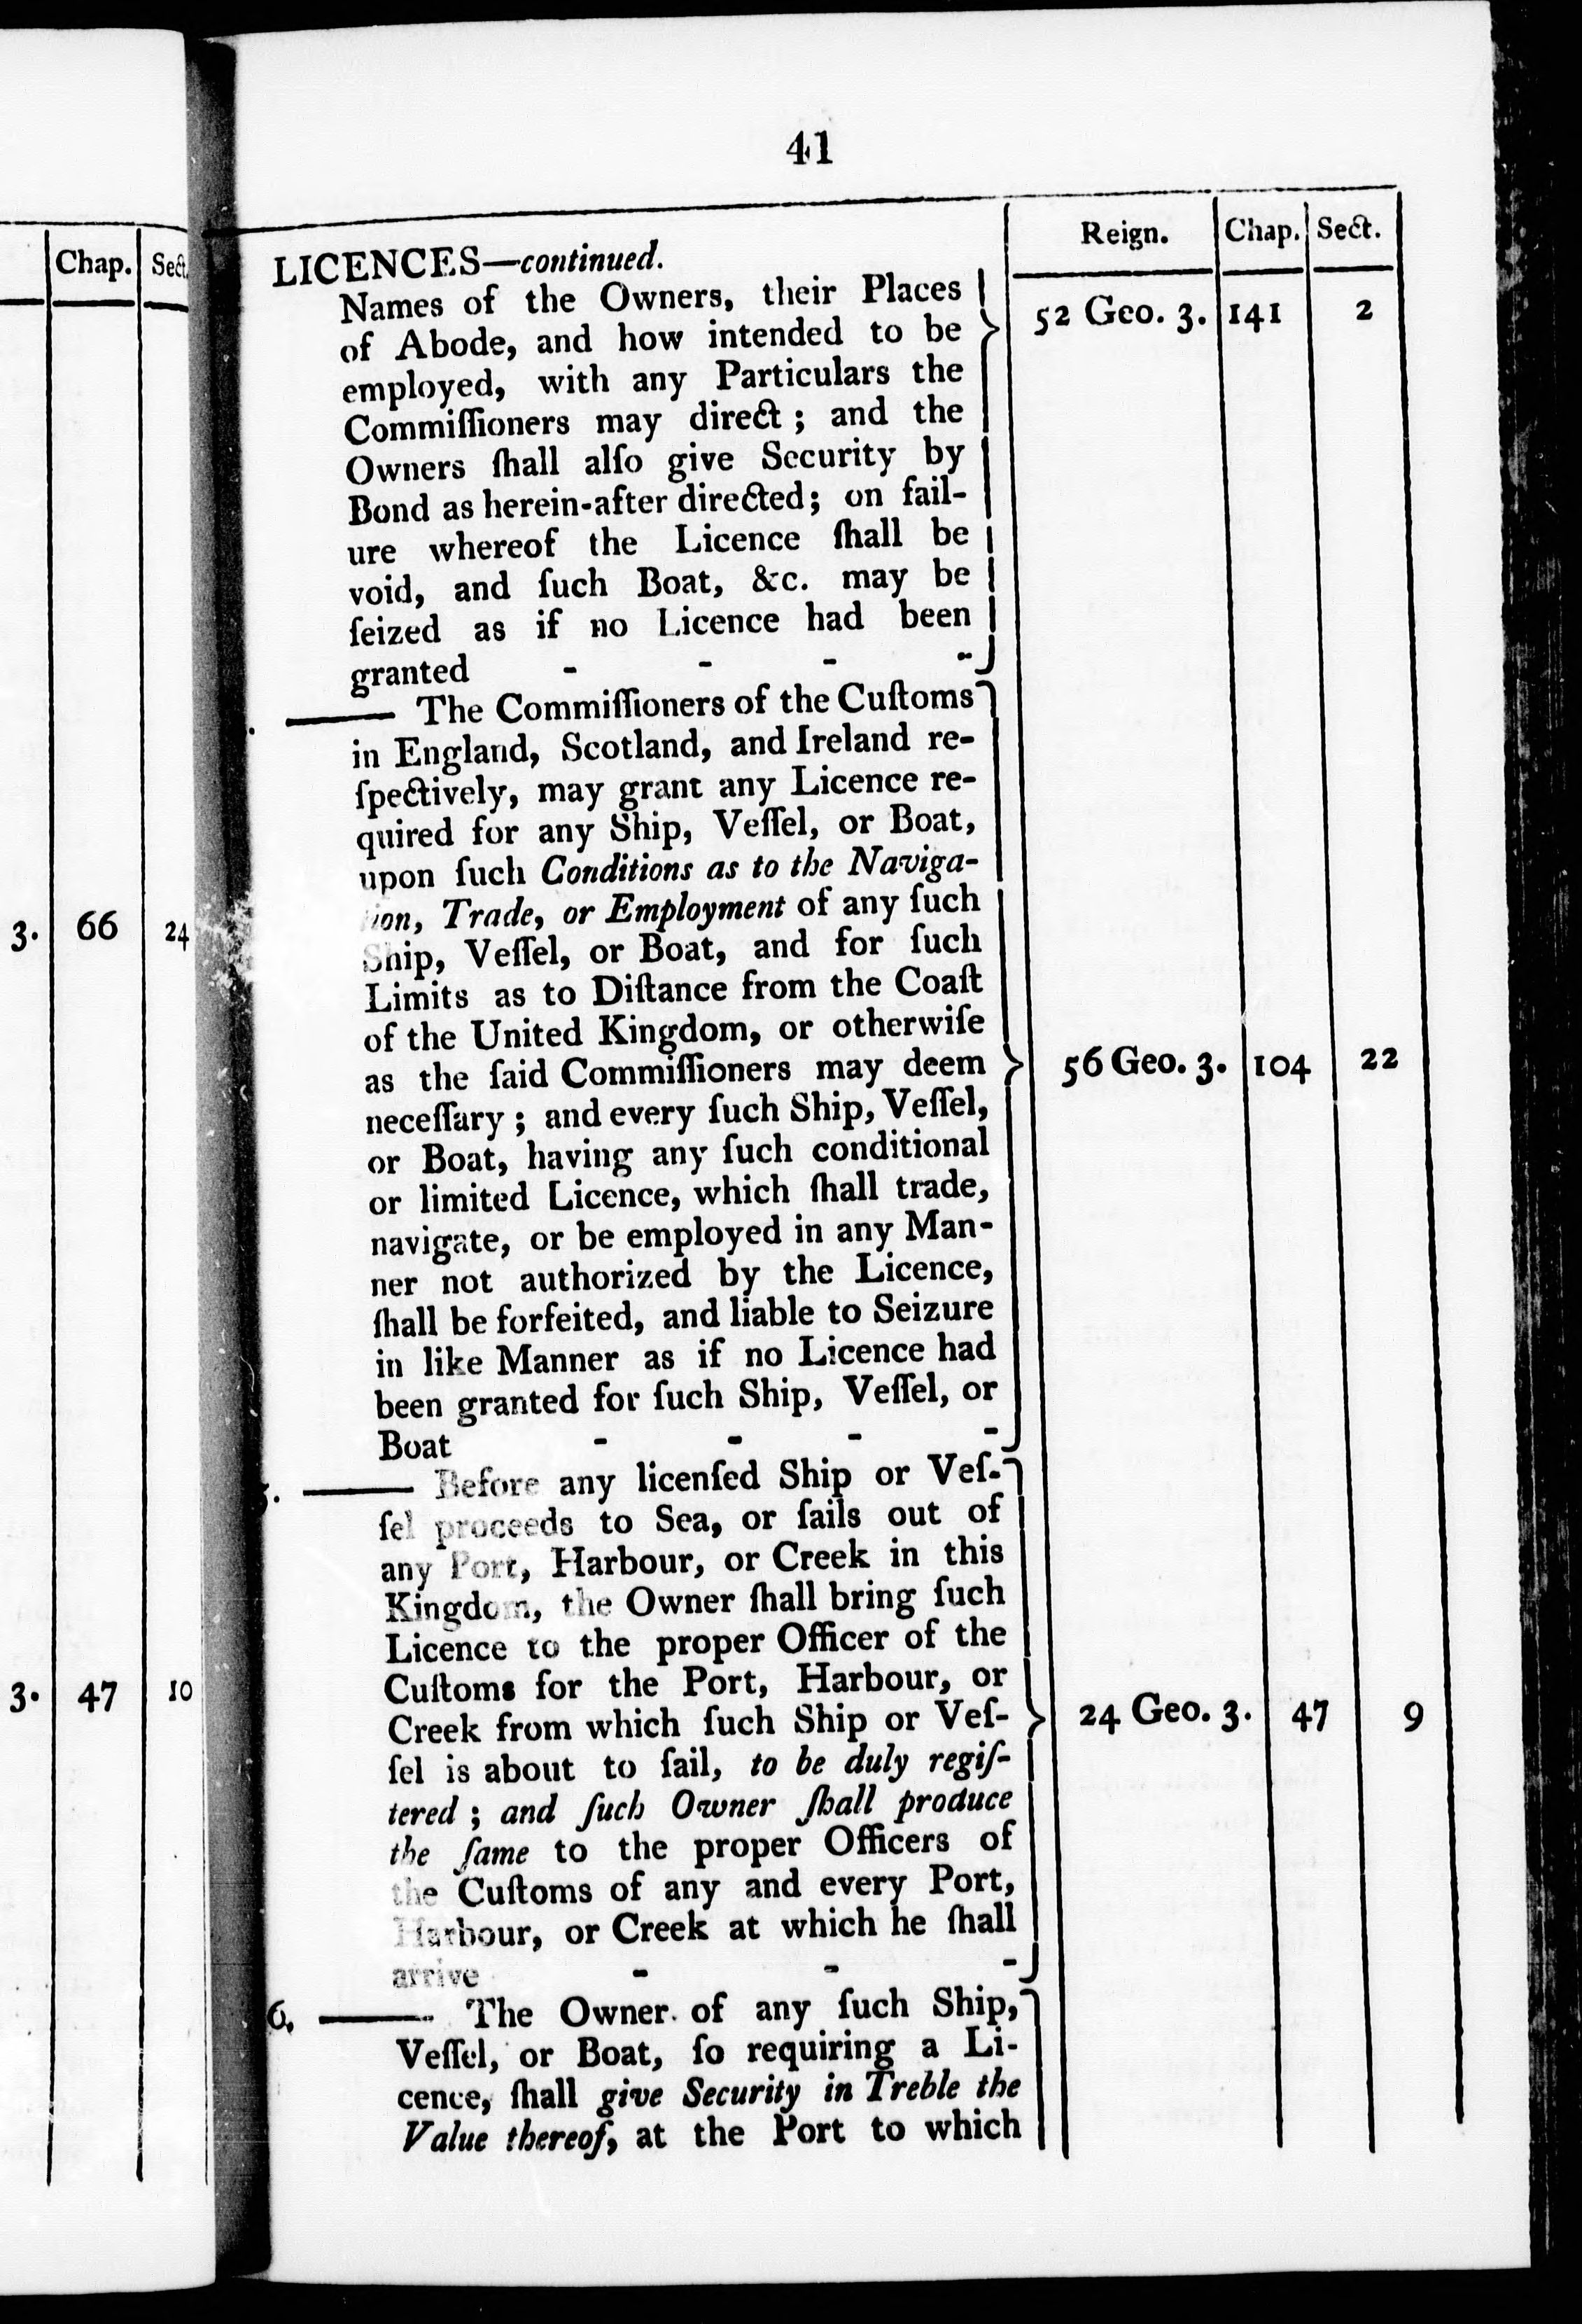 41
Chap. Sect.
3. 66 24
3. 47 10
Reign. Chap. Sect.
LICENCES—continued.
Names of the Owners, their Places
of Abode, and how intended to be 52 Geo. 3. 141 2
employed, with any Particulars the
Commiſſioners may direct ; and the
Owners ſhall alſo give Security by
Bond as herein-after directed; on fail-
ure whereof the Licence ſhall be
void, and ſuch Boat, &c. may be
ſeized as if no Licence had been
granted - - - -
—— The Commiſſioners of the Cuſtoms
in England, Scotland, and Ireland re-
ſpectively, may grant any Licence re-
quired for any Ship, Veſſel, or Boat,
upon ſuch Conditions as to the Naviga-
tion, Trade, or Employment of any ſuch
Ship, Veſſel, or Boat, and for ſuch
Limits as to Diſtance from the Coaſt
of the United Kingdom, or otherwiſe
as the ſaid Commiſſioners may deem 56 Geo. 3. 104 22
neceſſary ; and every ſuch Ship, Veſſel,
or Boat, having any ſuch conditional
or limited Licence, which ſhall trade,
navigate, or be employed in any Man-
ner not authorized by the Licence,
ſhall be forfeited, and liable to Seizure
in like Manner as if no Licence had
been granted for ſuch Ship, Veſſel, or
Boat - - - -
—— Before any licenſed Ship or Veſ-
ſel proceeds to Sea, or ſails out of
any Port, Harbour, or Creek in this
Kingdom, the Owner ſhall bring ſuch
Licence to the proper Officer of the
Cuſtoms for the Port, Harbour, or
Creek from which ſuch Ship or Veſ- 24 Geo. 3. 47 9
ſel is about to ſail, to be duly regiſ-
tered ; and ſuch Owner ſhall produce
the ſame to the proper Officers of
the Cuſtoms of any and every Port,
Harbour, or Creek at which he ſhall
arrive - - -
6. —— The Owner of any ſuch Ship,
Veſſel, or Boat, ſo requiring a Li-
cence, ſhall give Security in Treble the
Value thereof, at the Port to which